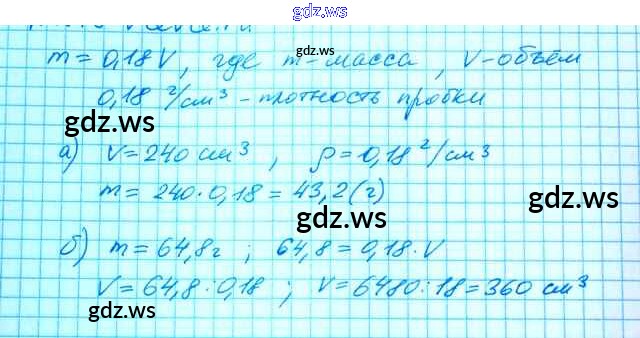 gdz.ws
m = 0,18V, где m - масса, V - объём
0,18 г/см³ - плотность пробки
gdz.ws
а) V = 240 см³, ρ = 0,18 г/см³
m = 240·0,18 = 43,2 (г)
gdz.ws
gdz.ws
б) m = 64,8 г ; 64,8 = 0,18·V
V = 64,8 : 0,18 ; V = 6480 : 18 = 360 см³
gdz.ws
gdz.ws